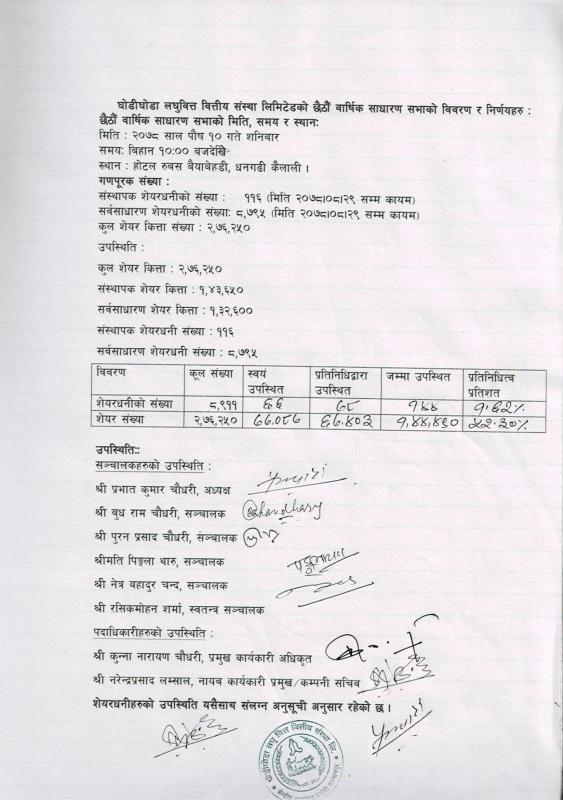 घोडीघोडा लघुवित्त वित्तीय संस्था लिमिटेडको छैठौं वार्षिक साधारण सभाको विवरण र निर्णयहरु :
छैठौं वार्षिक साधारण सभाको मिति, समय र स्थानः
मिति : २०७८ साल पौष १० गते शनिबार
समय: बिहान १०:०० बजदेखि
स्थान : होटल रुबस बैयाबेहडी, धनगढी कैलाली ।
गणपूरक संख्या :
संस्थापक शेयरधनीको संख्या : ११६ (मिति २०७८।०८।२९ सम्म कायम)
सर्वसाधारण शेयरधनीको संख्या: ८,७९५ (मिति २०७८।०८।२९ सम्म कायम)
कुल शेयर कित्ता संख्या : २,७६,२५०
उपस्थिति :
कुल शेयर कित्ता : २,७६,२५०
संस्थापक शेयर कित्ता : १,४३,६५०
सर्वसाधारण शेयर कित्ता : १,३२,६००
संस्थापक शेयरधनी संख्या : ११६
सर्वसाधारण शेयरधनी संख्या : ८,७९५
विवरण कूल संख्या स्वयं उपस्थित प्रतिनिधिद्वारा उपस्थित जम्मा उपस्थित प्रतिनिधित्व प्रतिशत
शेयरधनीको संख्या ८,९११ ६६ ७८ १४४ १.६२%
शेयर संख्या २,७६,२५० ७७,०८७ ६७,४०३ १,४४,४९० ५२.३०%
उपस्थितिः:
सञ्चालकहरुको उपस्थिति :
श्री प्रभात कुमार चौधरी, अध्यक्ष
श्री बुध राम चौधरी, सञ्चालक
श्री पुरन प्रसाद चौधरी, संञ्चालक
श्रीमति पिङ्गला थारु, सञ्चालक
श्री नेत्र बहादुर चन्द, सञ्चालक
श्री रसिकमोहन शर्मा, स्वतन्त्र सञ्चालक
पदाधिकारीहरुको उपस्थिति :
श्री कुन्ना नारायण चौधरी, प्रमुख कार्यकारी अधिकृत
श्री नरेन्द्रप्रसाद लम्साल, नायब कार्यकारी प्रमुख/कम्पनी सचिव
शेयरधनीहरुको उपस्थिति यसैसाथ संलग्न अनुसूची अनुसार रहेको छ।
घोडीघोडा लघु वित्त वित्तीय संस्था लि.